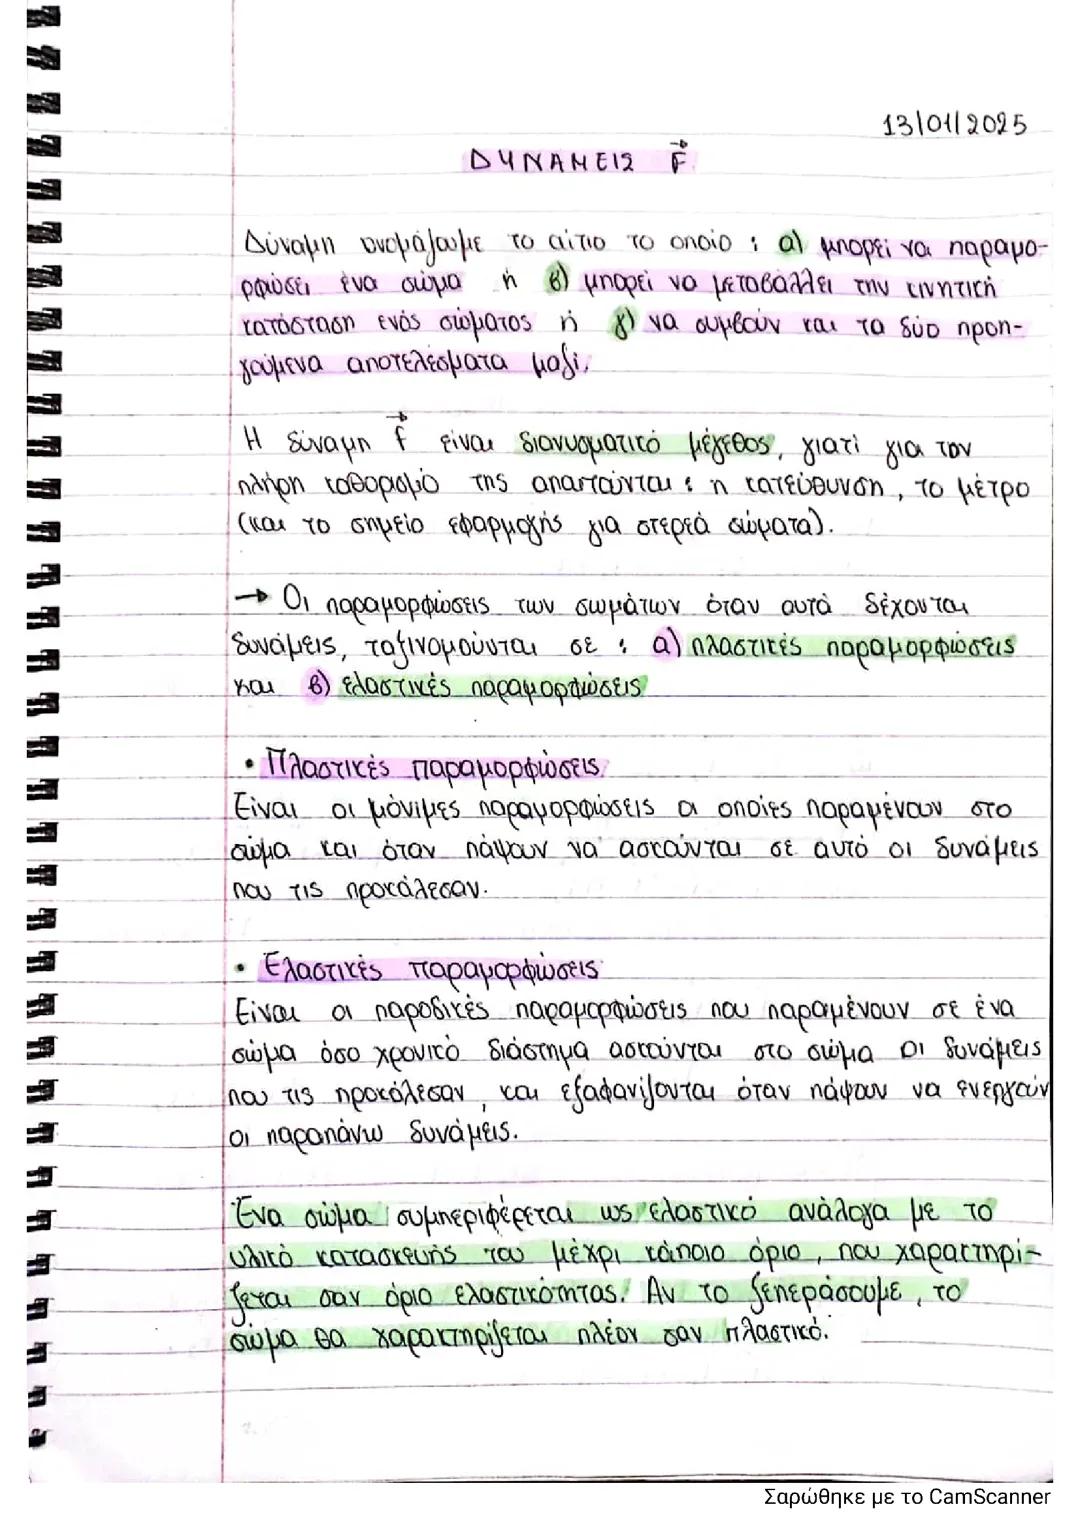 13/01/2025
ΔΥΝΑΜΕΙΣ F
Δύναμη ονομάζουμε το αίτιο το οποίο : α) μπορεί να παραμο-
ρφώσει ένα σώμα ή β) μπορεί να μεταβάλλει την κινητική
κατάσταση ενός σώματος ή γ) να συμβούν και τα δύο προη-
γούμενα αποτελέσματα μαζί.
Η δύναμη f είναι διανυσματικό μέγεθος, γιατί για τον
πλήρη καθορισμό της απαιτούνται : η κατεύθυνση, το μέτρο
(και το σημείο εφαρμογής για στερεά σώματα).
→ Οι παραμορφώσεις των σωμάτων όταν αυτά δέχονται
δυνάμεις, ταξινομούνται σε : α) πλαστικές παραμορφώσεις
και β) ελαστικές παραμορφώσεις
• Πλαστικές παραμορφώσεις
Είναι οι μόνιμες παραμορφώσεις οι οποίες παραμένουν στο
σώμα και όταν πάψουν να ασκούνται σε αυτό οι δυνάμεις
που τις προκάλεσαν.
• Ελαστικές παραμορφώσεις
Είναι οι παροδικές παραμορφώσεις που παραμένουν σε ένα
σώμα όσο χρονικό διάστημα ασκούνται στο σώμα οι δυνάμεις
που τις προκάλεσαν, και εξαφανίζονται όταν πάψουν να ενεργούν
οι παραπάνω δυνάμεις.
Ένα σώμα συμπεριφέρεται ως ελαστικό ανάλογα με το
υλικό κατασκευής του μέχρι κάποιο όριο, που χαρακτηρί-
ζεται σαν όριο ελαστικότητας. Αν το ξεπεράσουμε, το
σώμα θα χαρακτηρίζεται πλέον σαν πλαστικό.
Σαρώθηκε με το CamScanner